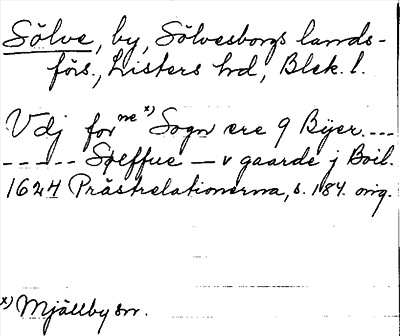 Sölve, by, Sölvesborgs lands-
förs., Listers hd, Blek. l.
Vdj for ne x) Sogn ere 9 Byer. ---
----- Søeffue — v gaarde j Boil.
1624 Prästrelationerna, s. 184. orig.
x) Mjällby sn.